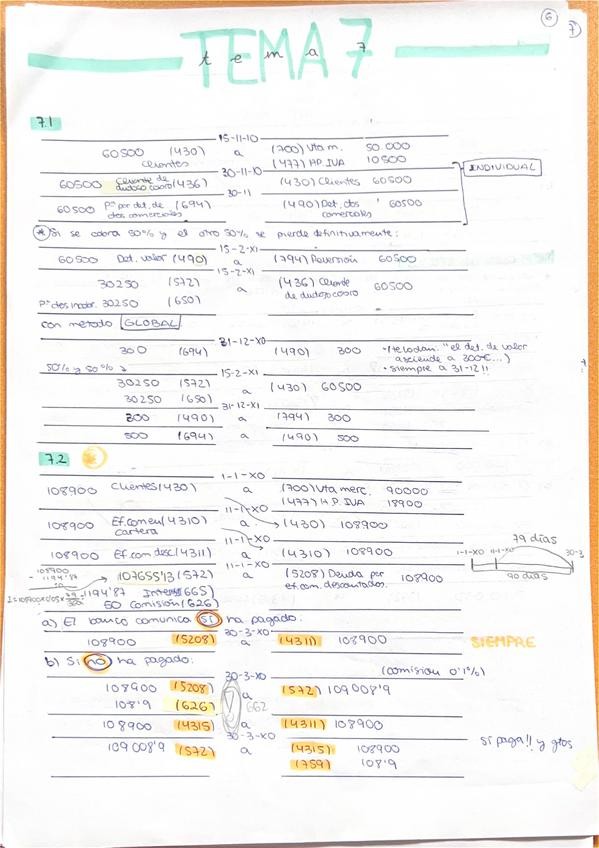 6
7
TEMA 7
tema 7
7.1
15-11-10
60500 (430) a (700) Vta m. 50.000
clientes (477) H.P. IVA 10500
30-11-10
60500 cliente de dudoso cobro (436) (430) Clientes 60500
INDIVIDUAL
30-11
60500 Pª por det. de dos comerciales (694) (490) Det. dos comerciales 60500
* Si se cobra 50% y el otro 50% se pierde definitivamente:
15-2-X1
60500 Det. valor (490) a (794) Reversión 60500
15-2-X1
30250 (572) a (436) Cliente de dudoso cobro 60500
Pª dos incobr. 30250 (650)
con metodo GLOBAL
31-12-X0
300 (694) (490) 300 · (te lo dan: "el det. de valor asciende a 300€...)
· siempre a 31-12!!
50% y 50%
15-2-X1
30250 (572) a (430) 60500
30250 (650)
31-12-X1
300 (490) a (794) 300
500 (694) a (490) 500
7.2
1-1-X0
108900 Clientes (430) a (700) Vta merc. 90000
(477) H.P. IVA 18900
11-1-X0
108900 Ef. comen cartera (4310) a (430) 108900
11-1-X0
108900 Ef. com desc. (4311) a (4310) 108900
79 días
1-1-X0 11-1-X0 30-3
90 días
11-1-X0
108900
- 1194'87
107655'13 (572) a (5208) Deuda por ef. com. descontados. 108900
1194'87 Interés (665)
50 Comisión (626)
a) El banco comunica SÍ ha pagado:
30-3-X0
108900 (5208) a (4311) 108900
SIEMPRE
b) Si no ha pagado:
30-3-X0
(comisión 0'1%)
108900 (5208) a (572) 109008'9
108'9 (626) 662
108900 (4315) a (4311) 108900
30-3-X0
109008'9 (572) a (4315) 108900
(759) 108'9
si paga!! y gtos